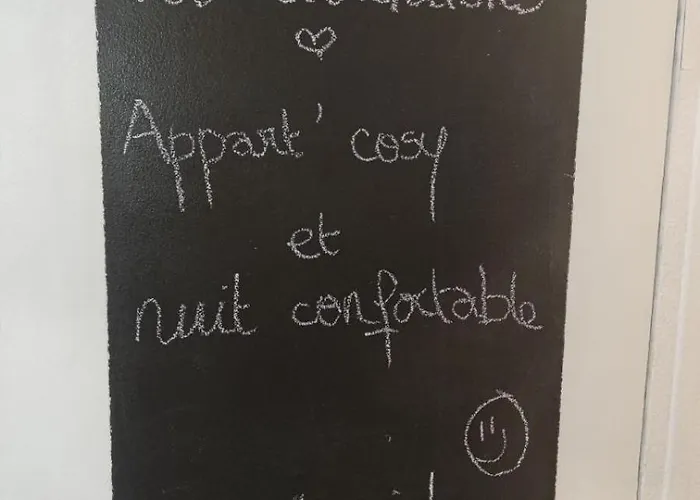 Appart' cosy
et
nuit confortable